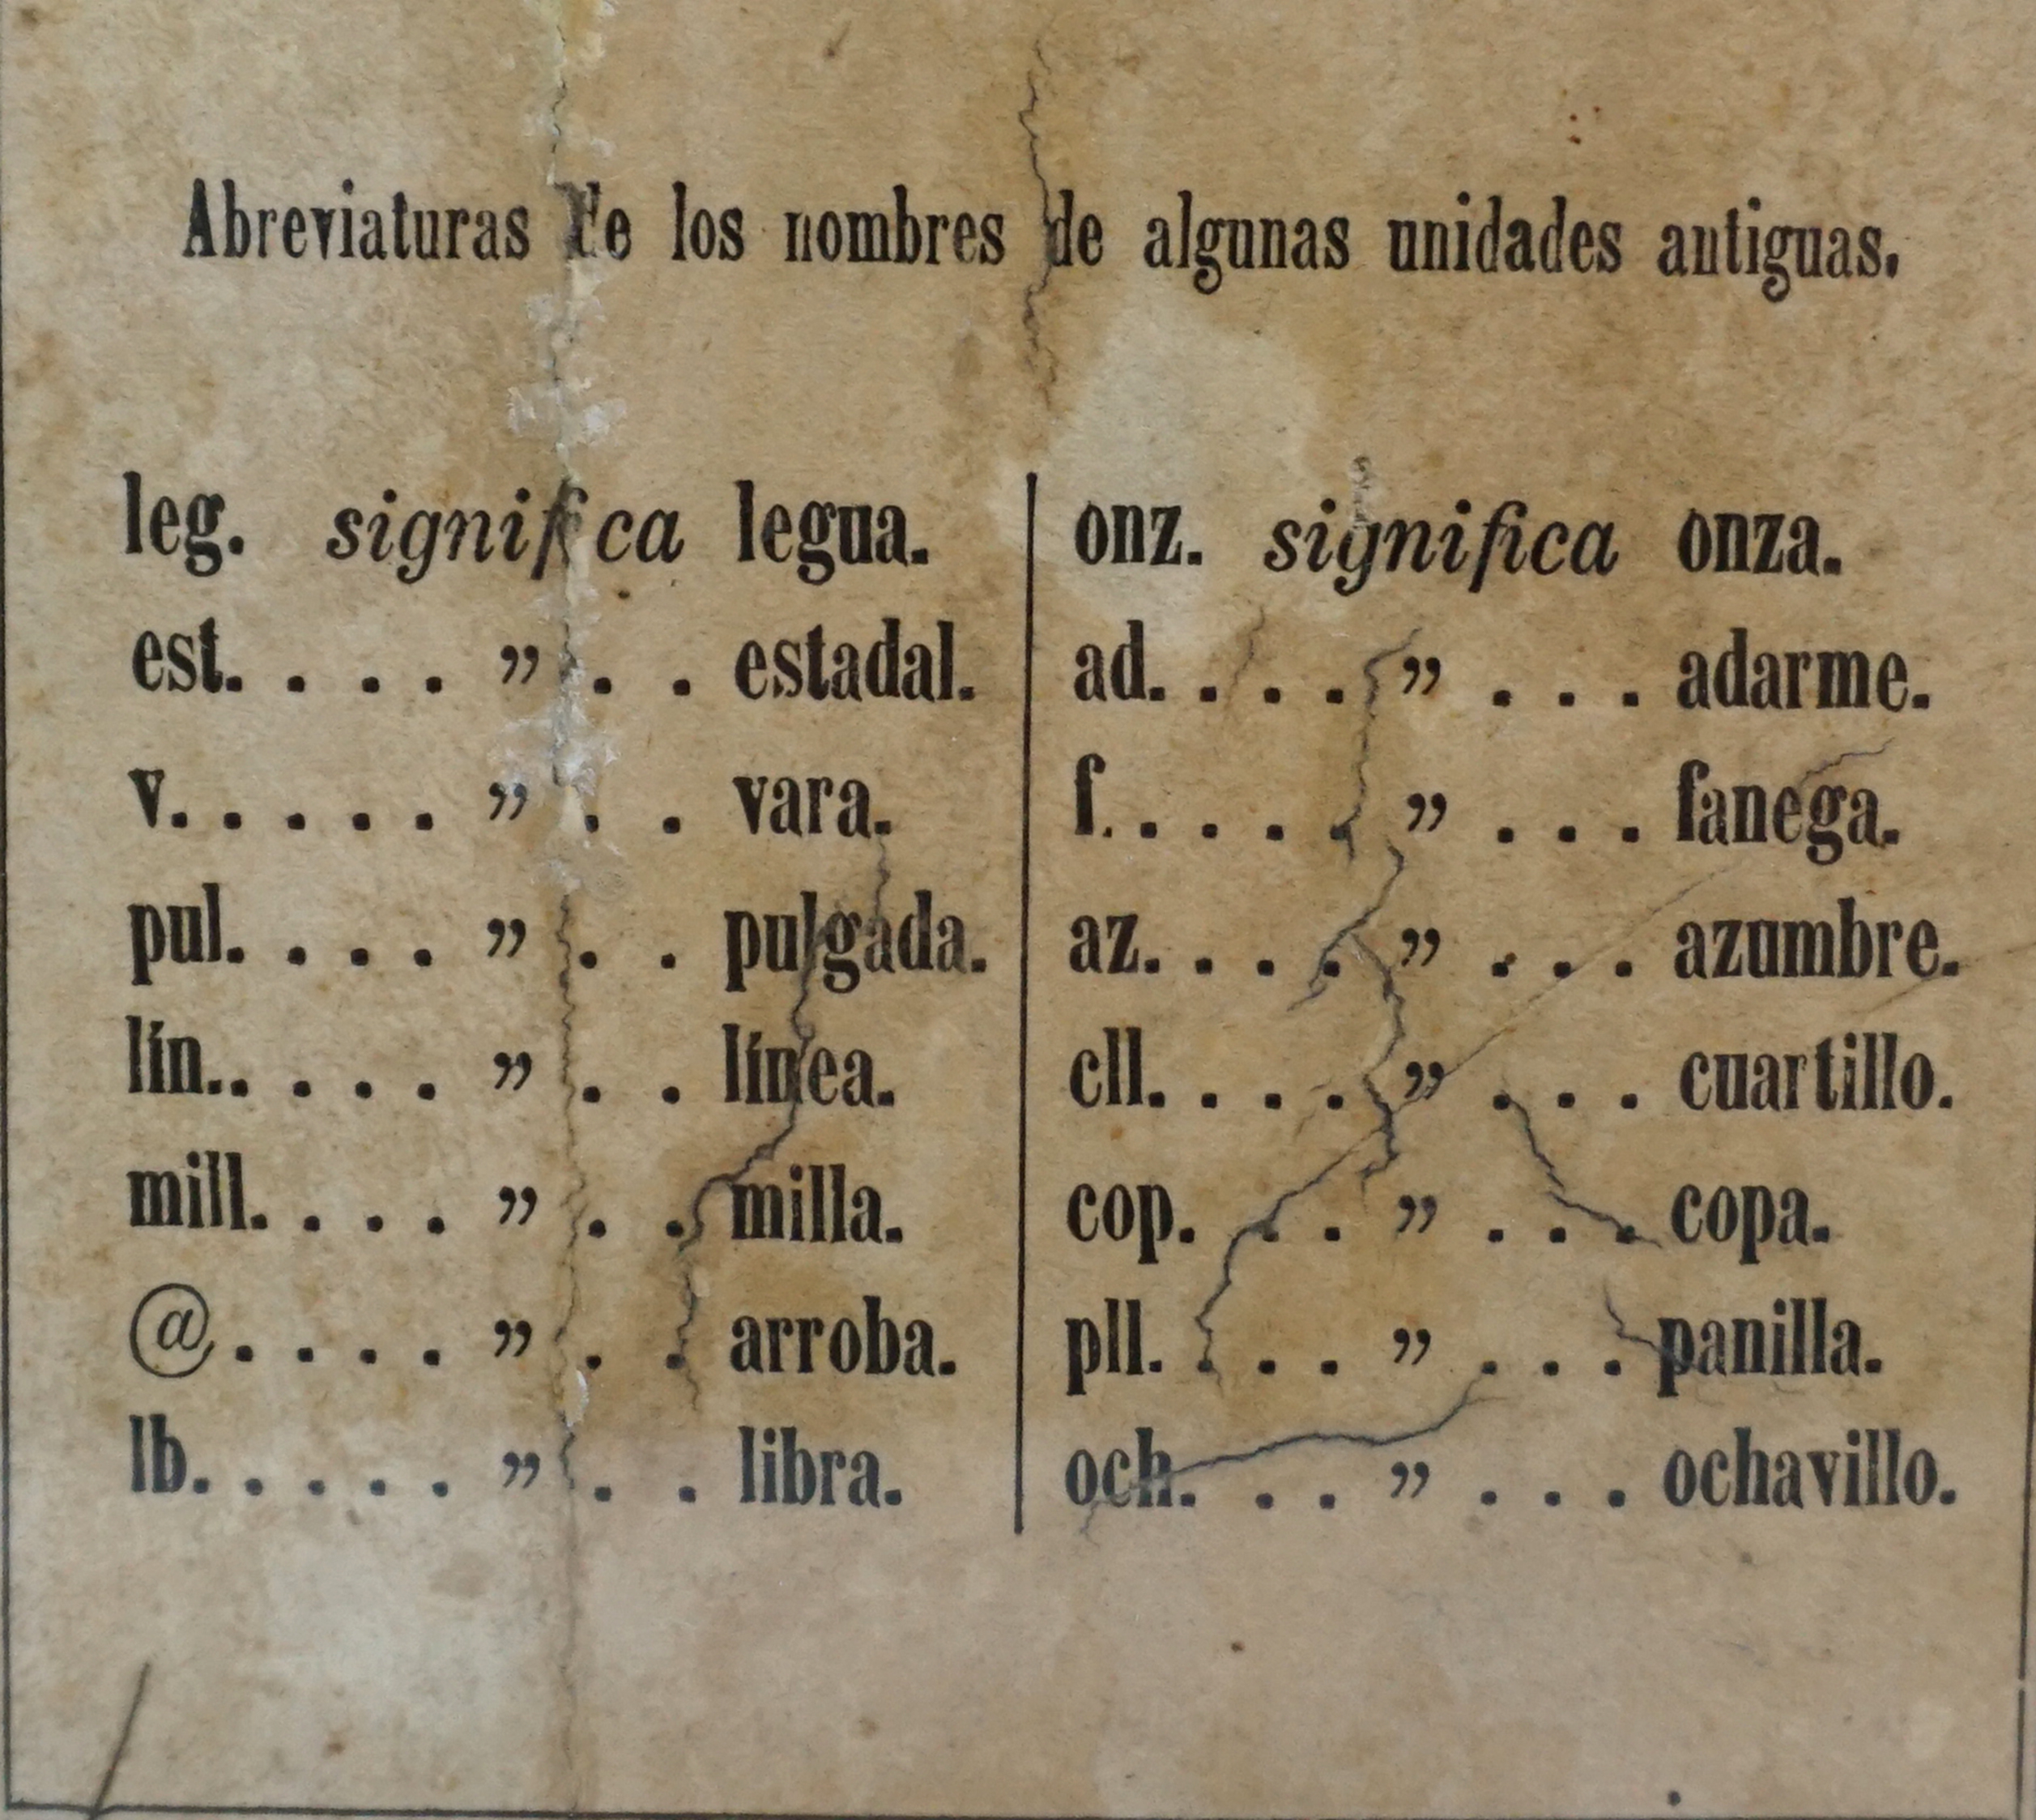 Abreviaturas de los nombres de algunas unidades antiguas.
leg. significa legua.
est. . . . ” . . estadal.
v. . . . . ” . . vara.
pul. . . . ” . . pulgada.
lín.. . . . ” . . línea.
mill. . . . ” . . milla.
@ . . . . ” . . arroba.
lb. . . . . ” . . libra.
onz. significa onza.
ad. . . . ” . . . adarme.
f. . . . . ” . . . fanega.
az. . . . ” . . . azumbre.
cll. . . . ” . . . cuartillo.
cop. . . ” . . . copa.
pll. . . . ” . . . panilla.
och. . . ” . . . ochavillo.